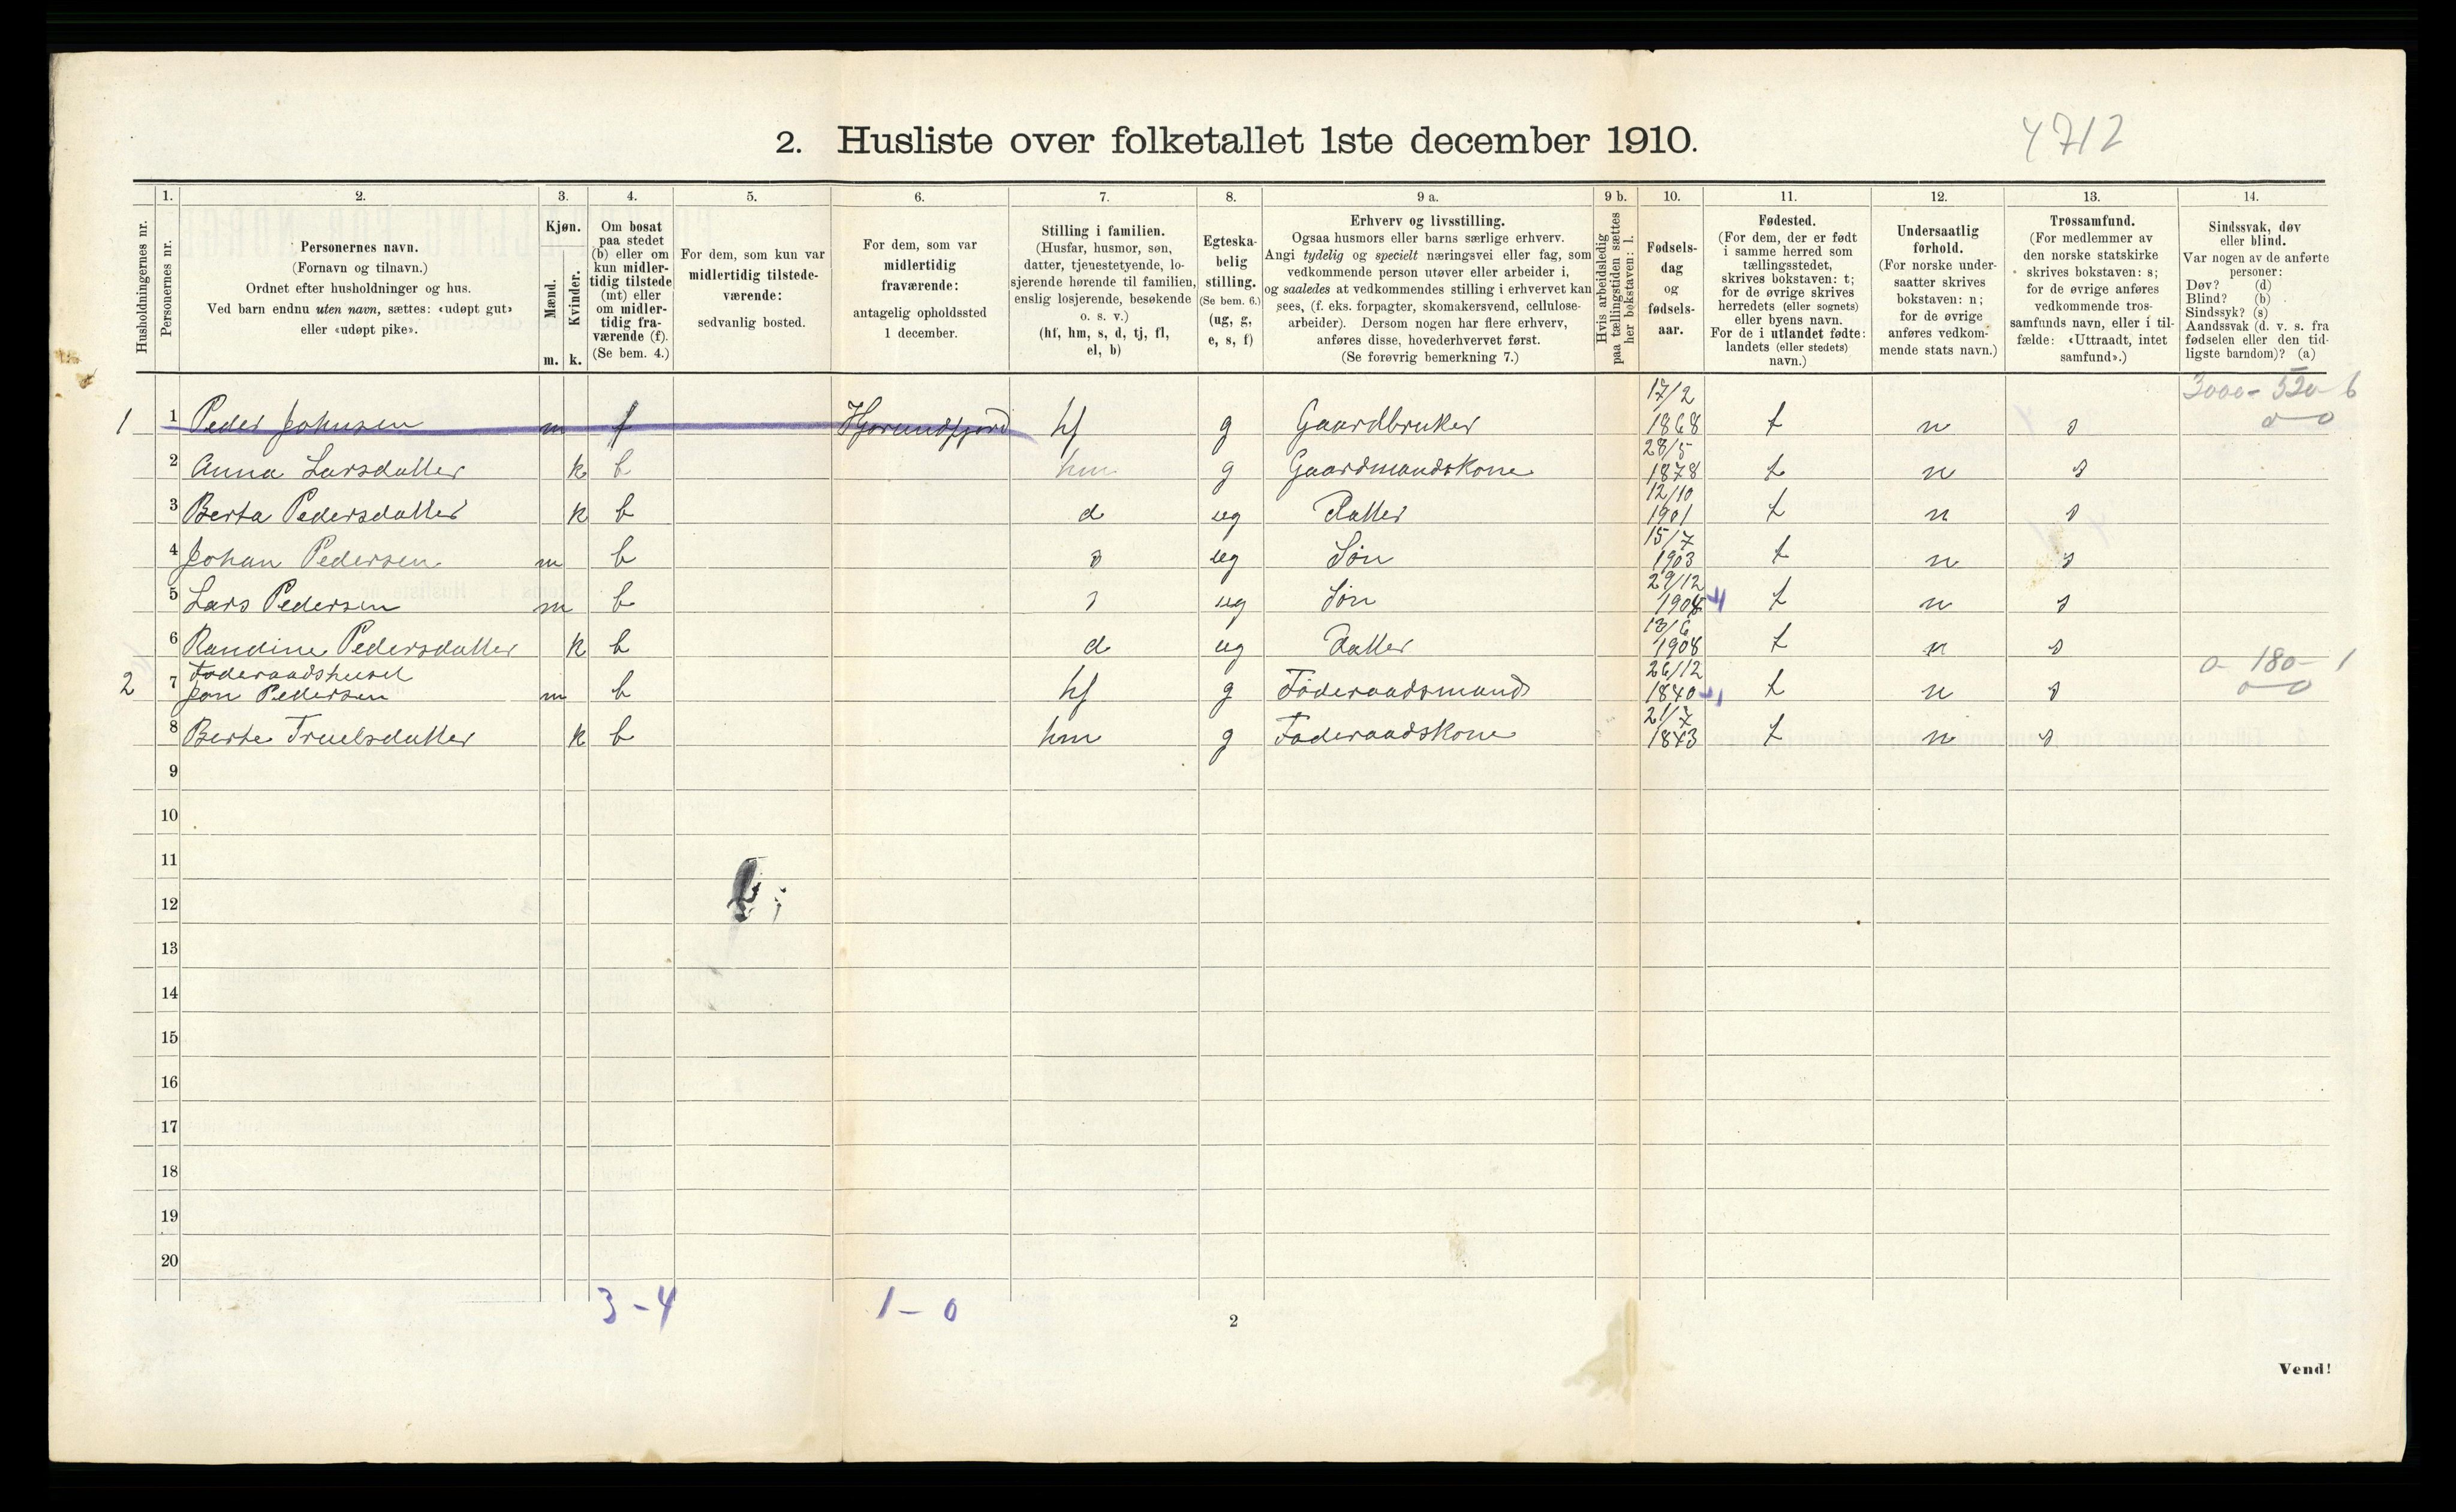 2. Husliste over folketallet 1ste december 1910.
4712
Husholdningernes nr.
1.
Personernes nr.
2.
Personernes navn.
(Fornavn og tilnavn.)
Ordnet efter husholdninger og hus.
Ved barn endnu uten navn, sættes: «udøpt gut»
eller «udøpt pike».
3.
Kjøn.
Mænd.
Kvinder.
m. k.
4.
Om bosat
paa stedet
(b) eller om
kun midler-
tidig tilstede
(mt) eller
om midler-
tidig fra-
værende (f).
(Se bem. 4.)
5.
For dem, som kun var
midlertidig tilstede-
værende:
sedvanlig bosted.
6.
For dem, som var
midlertidig
fraværende:
antagelig opholdssted
1 december.
7.
Stilling i familien.
(Husfar, husmor, søn,
datter, tjenestetyende, lo-
sjerende hørende til familien,
enslig losjerende, besøkende
o. s. v.)
(hf, hm, s, d, tj, fl,
el, b)
8.
Egteska-
belig
stilling.
(Se bem. 6.)
(ug, g,
e, s, f)
9 a.
Erhverv og livsstilling.
Ogsaa husmors eller barns særlige erhverv.
Angi tydelig og specielt næringsvei eller fag, som
vedkommende person utøver eller arbeider i,
og saaledes at vedkommendes stilling i erhvervet kan
sees, (f. eks. forpagter, skomakersvend, cellulose-
arbeider). Dersom nogen har flere erhverv,
anføres disse, hovederhvervet først.
(Se forøvrig bemerkning 7.)
9 b.
Hvis arbeidsledig
paa tællingstiden sættes
her bokstaven: l.
10.
Fødsels-
dag
og
fødsels-
aar.
11.
Fødested.
(For dem, der er født
i samme herred som
tællingsstedet,
skrives bokstaven: t;
for de øvrige skrives
herredets (eller sognets)
eller byens navn.
For de i utlandet fødte:
landets (eller stedets)
navn.)
12.
Undersaatlig
forhold.
(For norske under-
saatter skrives
bokstaven: n;
for de øvrige
anføres vedkom-
mende stats navn.)
13.
Trossamfund.
(For medlemmer av
den norske statskirke
skrives bokstaven: s;
for de øvrige anføres
vedkommende tros-
samfunds navn, eller i til-
fælde: «Uttraadt, intet
samfund».)
14.
Sindssvak, døv
eller blind.
Var nogen av de anførte
personer:
Døv? (d)
Blind? (b)
Sindssyk? (s)
Aandssvak (d. v. s. fra
fødselen eller den tid-
ligste barndom)? (a)
17/2 3000- 520- 6
1 1 Peder Johnsen m f Hjørundfjord hf g Gaardbruker 1868 t n s 0 - 0
28/5
2 Anna Larsdatter k b hm g Gaardmandskone 1878 t n s
12/10
3 Berta Pedersdatter k b d ug Datter 1901 t n s
15/7
4 Johan Pedersen m b s ug Søn 1903 t n s
29/12
5 Lars Pedersen m b s ug Søn 1904 4 t n s
13/6
6 Randine Pedersdatter k b d ug Datter 1908 t n s
Føderaadshuset 26/12 0- 180- 1
2 7 Jon Pedersen m b hf g Føderaadsmand 1840 t n s 0 - 0
21/7
8 Berte Truelsdatter k b hm g Føderaadskone 1843 t n s
9
10
11
12
13
14
15
16
17
18
19
20
3 - 4 1 - 0
2
Vend!